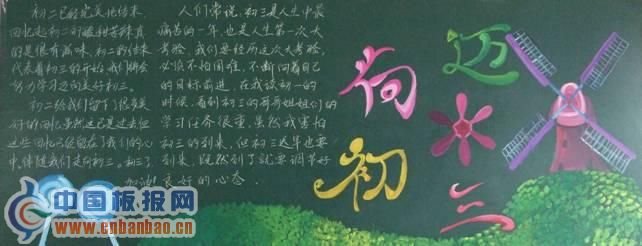 初二已经完美地结束,
回忆起初二的酸甜苦辣真
的是很有滋味,初二的结束
代表着初三的开始,我们将会
努力学习迈向美好初三。
初二给我们留下了很多美
好的回忆虽然这已是过去但
这些回忆还留在了我们的心
中,伴随我们走向初三。初三,
加油!
人们常说,初三是人生中最
痛苦的一年,也是人生第一次大
考验,我们要经历这次大考验,
必须不怕困难,不断向着自己
的目标前进,在我读初一的
时候,看到初三的哥哥姐姐们的
学习任务很重,虽然我害怕
初三的到来,但初三迟早也要
到来,既然到了就要调节好
良好的心态.
迈向
初三
中国板报网
www.cnbanbao.cn